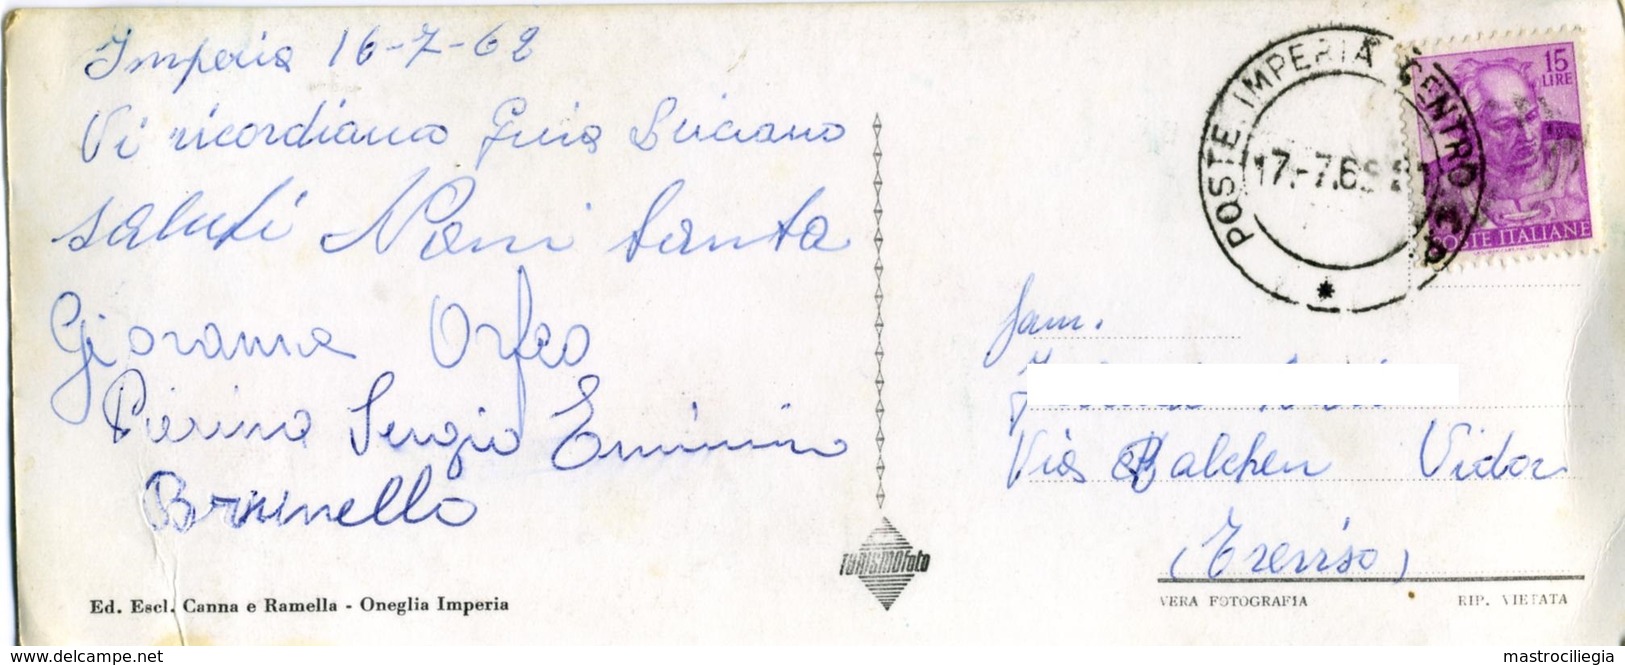 Imperia 16-7-62
Vi ricordiamo Luciano
saluti Noni Santa
Giovanna Orfeo
Pierina Sergio Erminio
Brunello
Ed. Escl. Canna e Ramella - Oneglia Imperia
TURISMOfoto
POSTE IMPERIA CENTRO
17.-7.6
15
LIRE
POSTE ITALIANE
fam.
Via Balchen Vidor
(Treviso)
VERA FOTOGRAFIA RIP. VIETATA
https://www.delcampe.net mastrociliegia